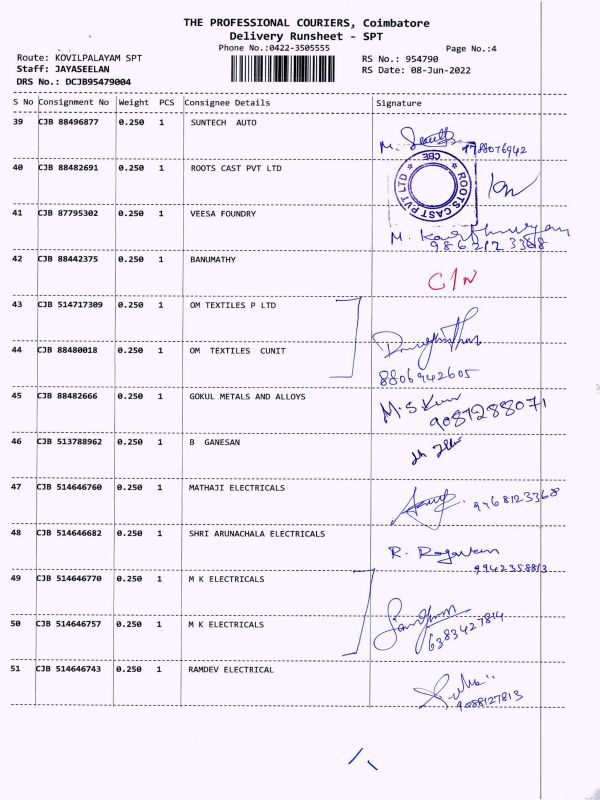 THE PROFESSIONAL COURIERS, Coimbatore
Delivery Runsheet - SPT
Phone No.:0422-3505555
Page No.:4
Route: KOVILPALAYAM SPT
RS No.: 954790
Staff: JAYASEELAN
RS Date: 08-Jun-2022
DRS No.: DCJB95479004
S No Consignment No Weight PCS Consignee Details Signature
39 CJB 88496877 0.250 1 SUNTECH AUTO
M.
40 CJB 88482691 0.250 1 ROOTS CAST PVT LTD
ROOTS CAST PVT LTD * CBE *
41 CJB 87795302 0.250 1 VEESA FOUNDRY
M.
42 CJB 88442375 0.250 1 BANUMATHY
C/N
43 CJB 514717309 0.250 1 OM TEXTILES P LTD
44 CJB 88480018 0.250 1 OM TEXTILES CUNIT
8806942605
45 CJB 88482666 0.250 1 GOKUL METALS AND ALLOYS
M.S
9087288071
46 CJB 513788962 0.250 1 B GANESAN
47 CJB 514646760 0.250 1 MATHAJI ELECTRICALS
9768123368
48 CJB 514646682 0.250 1 SHRI ARUNACHALA ELECTRICALS
R.
9942358813
49 CJB 514646770 0.250 1 M K ELECTRICALS
50 CJB 514646757 0.250 1 M K ELECTRICALS
6383427814
51 CJB 514646743 0.250 1 RAMDEV ELECTRICAL
9088127813